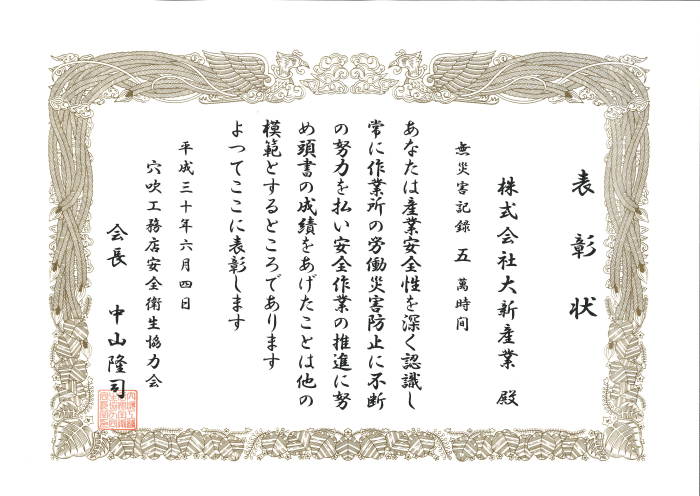 表彰状
株式会社大新産業 殿
無災害記録 五 萬時間
あなたは産業安全性を深く認識し
常に作業所の労働災害防止に不断
の努力を払い安全作業の推進に努
め頭書の成績をあげたことは他の
模範とするところであります
よつてここに表彰します
平成三十年六月四日
穴吹工務店安全衛生協力会
会長 中山隆司